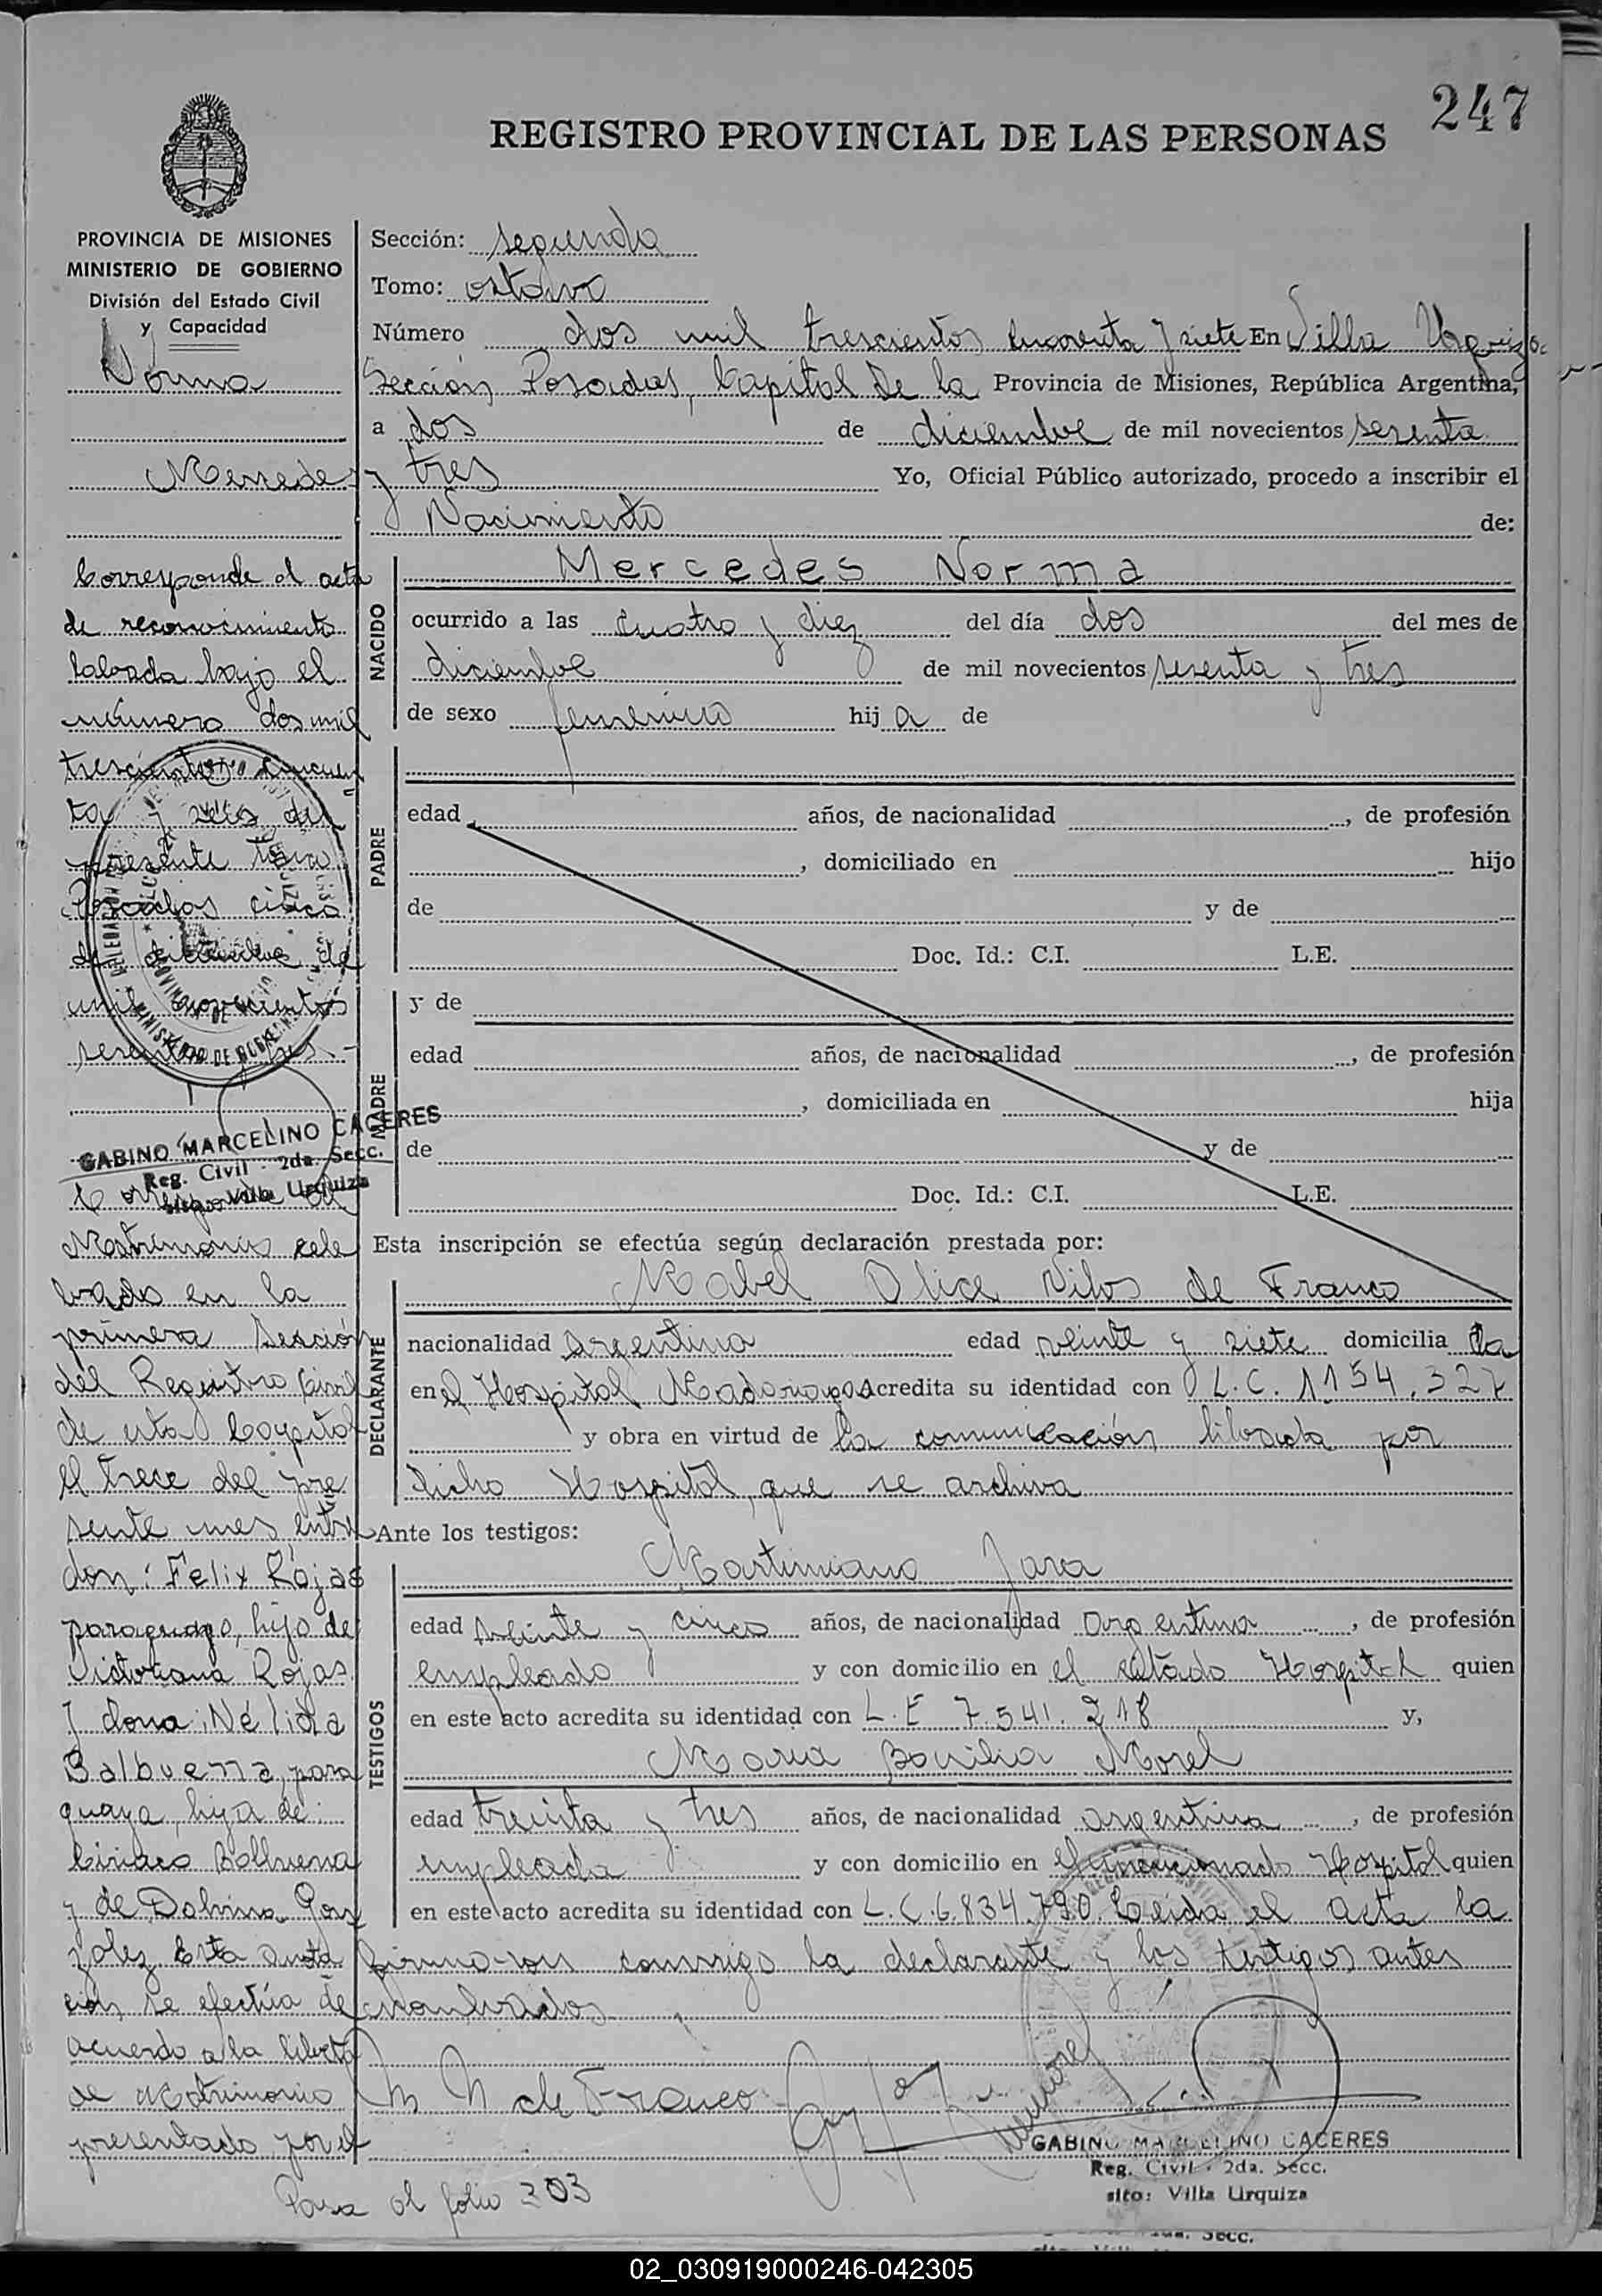 247
REGISTRO PROVINCIAL DE LAS PERSONAS
PROVINCIA DE MISIONES
MINISTERIO DE GOBIERNO
División del Estado Civil
y Capacidad
Norma
Mercedes
Corresponde al acta
de reconocimiento
labrada bajo el
número dos mil
trescientos cincuen
ta y seis del
presente tomo
Posadas cinco
de diciembre de
mil novecientos
sesenta y tres.-
GABINO MARCELINO CACERES
Reg. Civil - 2da. Secc.
sito: Villa Urquiza
Corresponde al
Matrimonio cele
brado en la
primera Sección
del Registro Civil
de esta Capital
el trece del pre
sente mes entre
don: Felix Rojas
paraguayo, hijo de
Victoriana Rojas
y dona: Nélida
Balbuena, para
guaya, hija de:
Ciriaco Balbuena
y de Gon
zalez. Esta anota
ción, se efectúa de
acuerdo a la libreta
de Matrimonio
presentado por el
Sección: segunda
Tomo: octavo
Número dos mil trescientos cincuenta y siete En Villa Urquiza
Sección Posadas, Capital de la Provincia de Misiones, República Argentina,
a dos de diciembre de mil novecientos sesenta
y tres Yo, Oficial Público autorizado, procedo a inscribir el
Nacimiento de:
NACIDO
Mercedes Norma
ocurrido a las cuatro y diez del día dos del mes de
diciembre de mil novecientos sesenta y tres
de sexo femenino hij a de
PADRE
edad años, de nacionalidad , de profesión
, domiciliado en hijo
de y de
Doc. Id.: C.I. L.E.
MADRE
y de
edad años, de nacionalidad , de profesión
, domiciliada en hija
de y de
Doc. Id.: C.I. L.E.
Esta inscripción se efectúa según declaración prestada por:
DECLARANTE
Mabel Alice de Franco
nacionalidad argentina edad veinte y siete domicilia da
en el Hospital Madariaga Acredita su identidad con L.C. 1154.327
y obra en virtud de la comunicación librada por
dicho Hospital, que se archiva
Ante los testigos:
TESTIGOS
Martiniano Jara
edad veinte y cinco años, de nacionalidad argentina , de profesión
empleado y con domicilio en el citado Hospital quien
en este acto acredita su identidad con L.E 7.541.218 y,
Maria Morel
edad treinta y tres años, de nacionalidad argentina , de profesión
empleada y con domicilio en el mencionado Hospital quien
en este acto acredita su identidad con L.C.6.834.790. Leida el acta la
firma-ron conmigo la declarante y los testigos antes
nombrados
M N de Franco
GABINO MARCELINO CACERES
Reg. Civil - 2da. Secc.
sito: Villa Urquiza
Pasa al folio 303
02_030919000246-042305